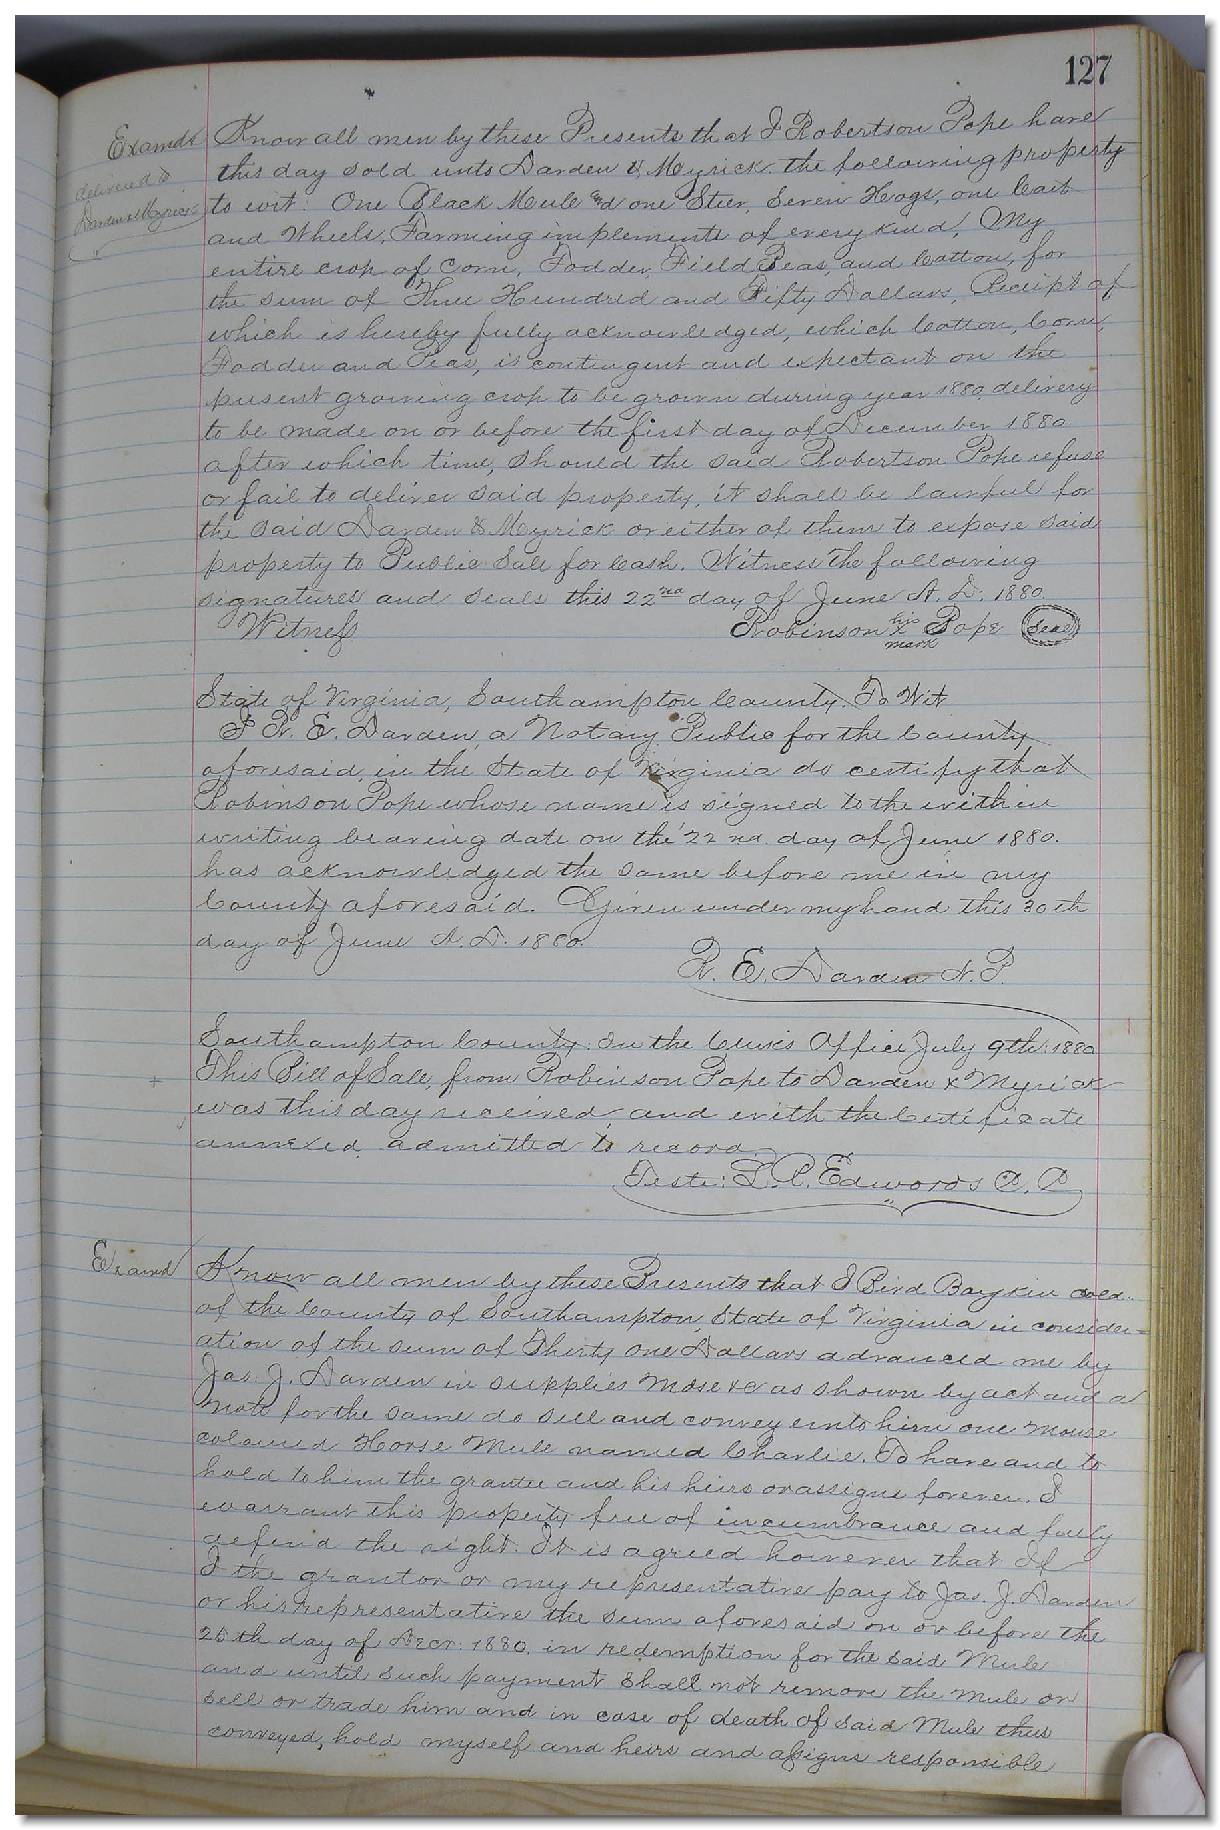 127
Examd
delivered to
Darden & Myrick
Know all men by these Presents that I Robertson Pope have
this day sold unto Darden & Myrick the following property
to wit: One Black Mule and one Steer, Seven Hogs, one Cart
and Wheels, Farming implements of every kind, My
entire crop of Corn, Fodder, Field Peas, and Cotton, for
the sum of Three Hundred and Fifty Dollars, Receipt of
which is hereby fully acknowledged, which Cotton, Corn,
Fodder and Peas, is contingent and expectant on the
present growing crop to be grown during year 1880, delivery
to be made on or before the first day of December 1880
after which time, should the said Robertson Pope refuse
or fail to deliver said property, it shall be lawful for
the said Darden & Myrick or either of them to expose said
property to Public Sale for Cash. Witness the following
signatures and seals this 22nd day of June A. D. 1880
Witness Robinson his x mark Pope (Seal)
State of Virginia, Southampton County, To Wit
I R. E. Darden, a Notary Public for the County
aforesaid, in the State of Virginia do certify that
Robinson Pope whose name is signed to the within
writing bearing date on the 22nd day of June 1880.
has acknowledged the same before me in my
County aforesaid. Given under my hand this 30th
day of June A. D. 1880.
R. E. Darden N. P.
Southampton County: In the Clerk's Office July 9th 1880
This Bill of Sale, from Robinson Pope to Darden & Myrick
was this day received, and with the Certificate
annexed admitted to record
Teste: L. R. Edwards
Examd
Know all men by these Presents that I Bird Boykin cold.
of the County of Southampton, State of Virginia in consider=
ation of the sum of Thirty one Dollars advanced me by
Jas. J. Darden in supplies Mdse &c as shown by act and a
note for the same do sell and convey unto him one mouse
coloured Horse Mule named Charlie. To have and to
hold to him the grantee and his heirs or assigns forever. I
warrant this property free of incumbrance and fully
defend the right. It is agreed however that If
I the grantor or my representative pay to Jas. J. Darden
or his representative the sum aforesaid on or before the
25th day of Decr. 1880, in redemption for the said Mule
and until such payment shall not remove the mule or
sell or trade him and in case of death of said Mule thus
conveyed, hold myself and heirs and assigns responsible